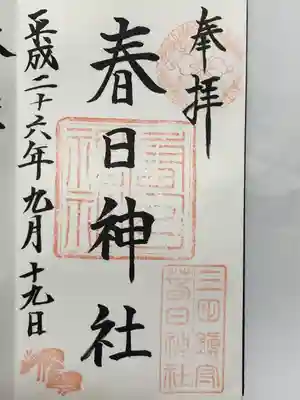 奉拝
春日神社
三田鎮守
春日神社
平成二十六年九月十九日